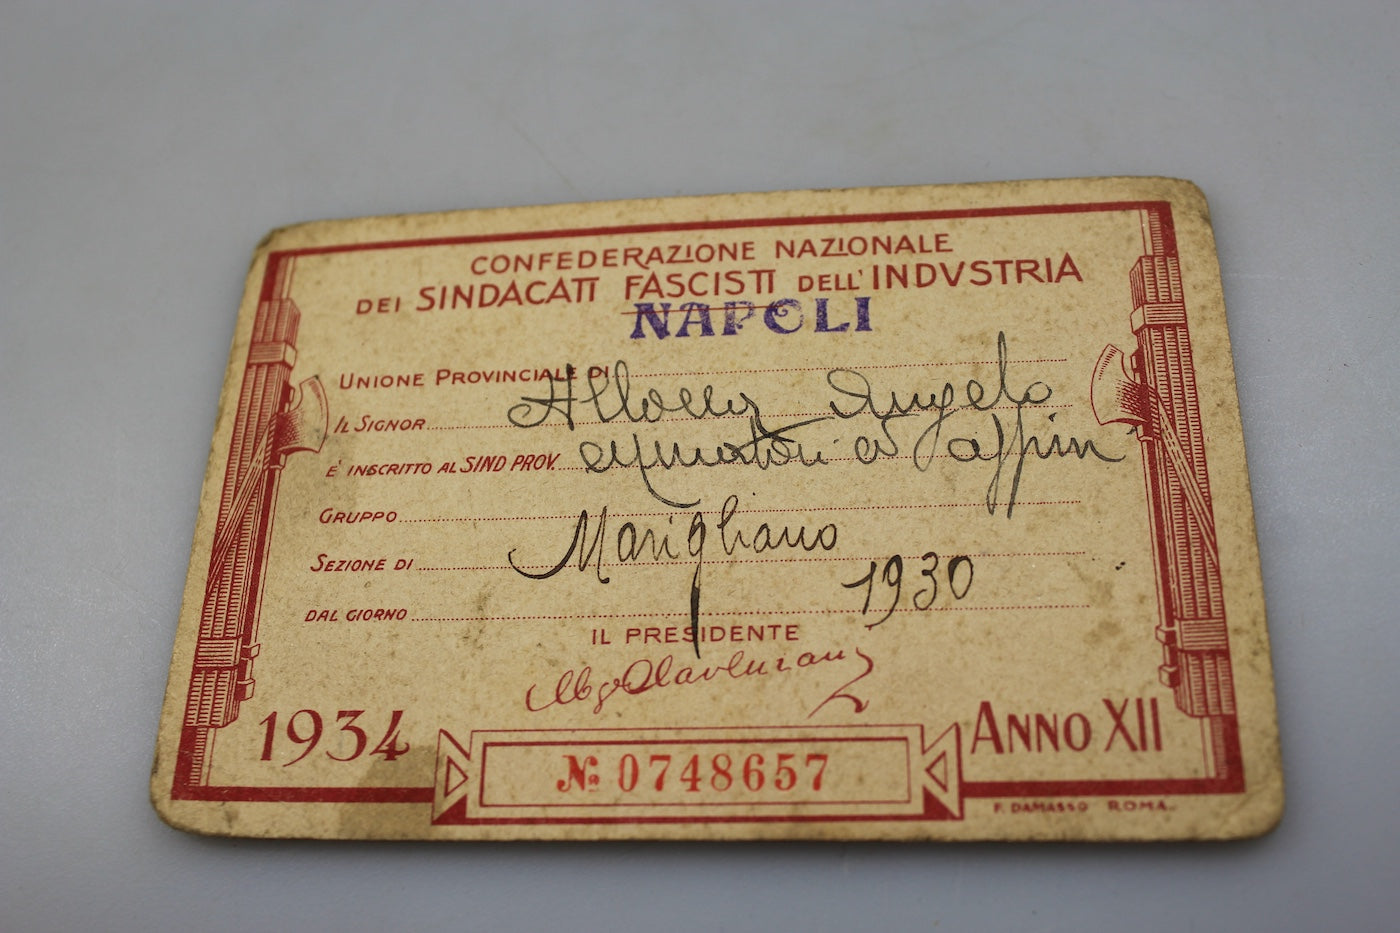 CONFEDERAZIONE NAZIONALE
DEI SINDACATI FASCISTI DELL'INDVSTRIA
NAPOLI
UNIONE PROVINCIALE DI
IL SIGNOR Angelo
È INSCRITTO AL SIND PROV. affini
GRUPPO
SEZIONE DI Marigliano
DAL GIORNO 1930
IL PRESIDENTE
1934 ANNO XII
№ 0748657
F. DAMASSO ROMA